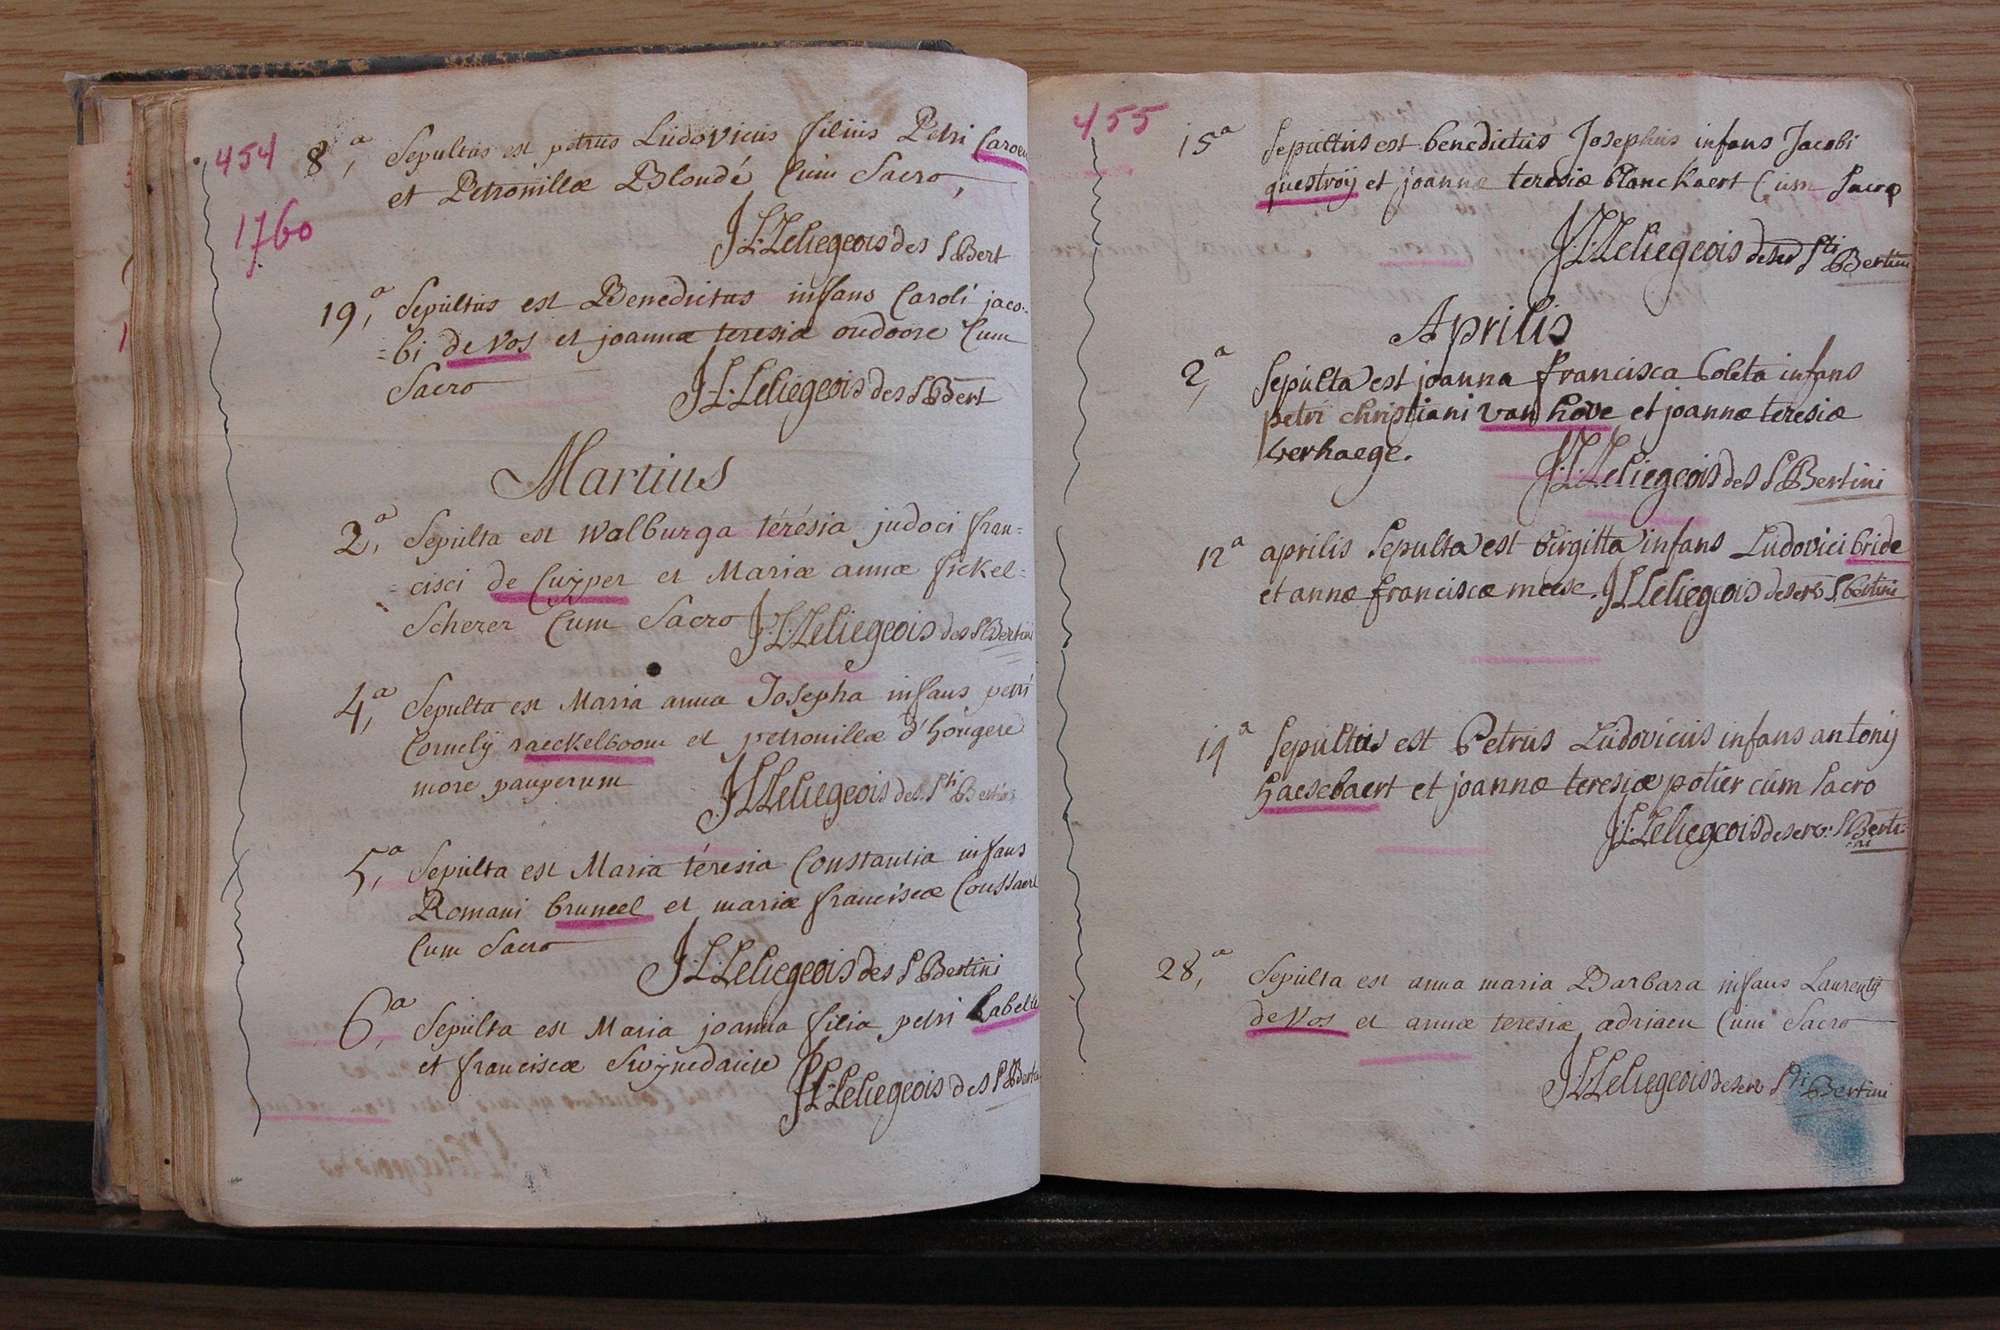 454
1760
8,a Sepultus est petrus Ludovicus filius Petri Caroen
et Petronillæ Blondé Cum Sacro,
J:L:Leliegeois des S Bert
19,a Sepultus est Benedictus infans Caroli jaco-
-bi de Vos et joannæ teresiæ oudoore Cum
Sacro
J:L:Leliegeois des S Bert
Martius
2,a Sepulta est Walburga térésia judoci fran=
-cisci de Cuÿper et Mariæ annæ fickel=
Scherer Cum Sacro J:L:Leliegeois des S Bertini
4,a Sepulta est Maria anna Josepha infans petri
Cornelÿ raeckelboom et petronillæ d'hongere
more pauperum
J:L:Leliegeois des Sti Bertini
5,a Sepulta est Maria téresia Constantia infans
Romani bruneel et mariæ franciscæ Coussaert
Cum Sacro
J:L:Leliegeois des S Bertini
6,a Sepulta est Maria joanna filia petri Labeltte
et franciscæ Swÿnedauw
J:L:Leliegeois des S Bertini
455
15a Sepultus est benedictus Josephus infans Jacobi
questroij et joannæ teresiæ blanckaert Cum Sacro
J:L:Leliegeois deser Sti Bertini
Aprilis
2,a Sepulta est joanna francisca Coleta infans
petri christiani van hove et joannæ teresiæ
verhaege.
J:L:Leliegeois des S Bertini
12a aprilis Sepulta est virgitta infans Ludovici bride
et annæ franciscæ meese. J L Leliegeois deserv S bertini
19a Sepultus est Petrus Ludovicus infans antonij
haesebaert et joannæ teresiæ potier cum Sacro
J:L:Leliegeois deserv: S Berti-
-ni
28,a Sepulta est anna maria Barbara infans Laurentij
de Vos et annæ teresiæ adriaen Cum Sacro
J L Leliegeois deserv Sti Bertini